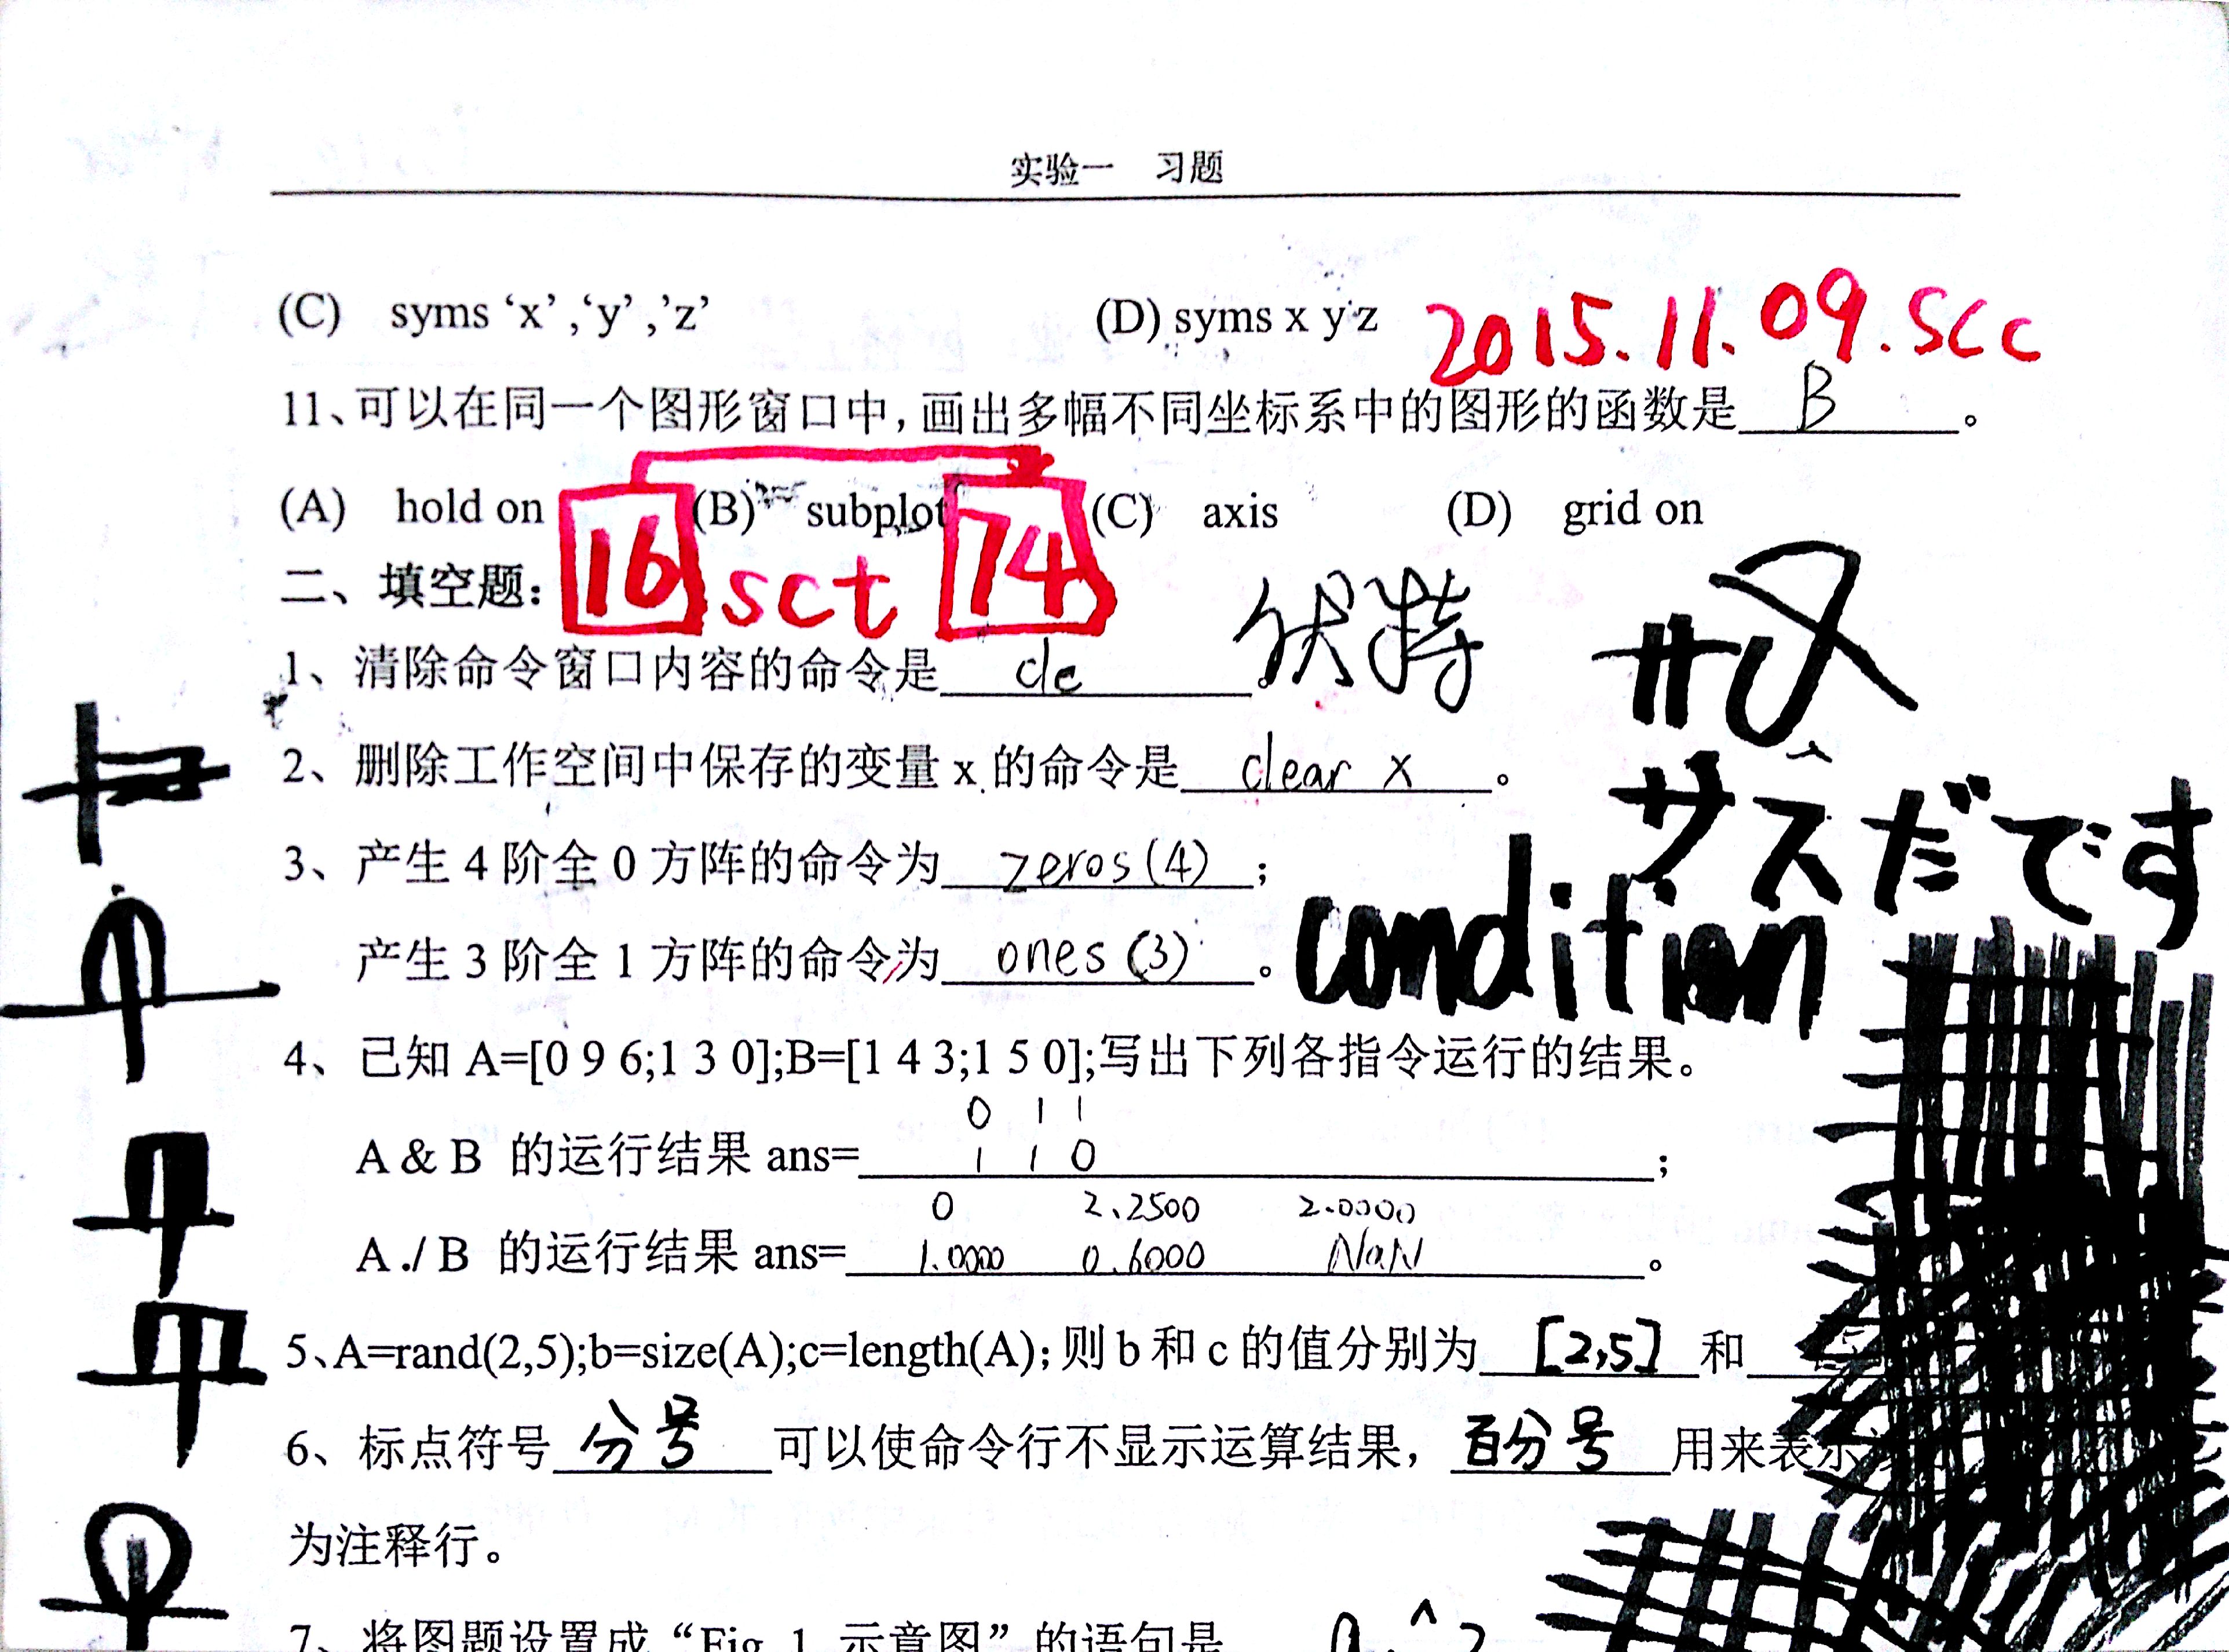 实验一 习题
(C) syms ‘x’ ,‘y’ ,’z’ (D) syms x y z 2015.11.09.scc
11、可以在同一个图形窗口中,画出多幅不同坐标系中的图形的函数是 B 。
(A) hold on (B) subplot (C) axis (D) grid on
16 sct 74
二、填空题:
1、清除命令窗口内容的命令是 clc 。 伏特
2、删除工作空间中保存的变量 x 的命令是 clear x 。
サスだです
3、产生 4 阶全 0 方阵的命令为 zeros(4) ;
产生 3 阶全 1 方阵的命令为 ones (3) 。 condition
4、已知 A=[0 9 6;1 3 0];B=[1 4 3;1 5 0];写出下列各指令运行的结果。
0 1 1
A & B 的运行结果 ans= 1 1 0 ;
0 2.2500 2.0000
A ./ B 的运行结果 ans= 1.0000 0.6000 NaN 。
5、A=rand(2,5);b=size(A);c=length(A);则 b 和 c 的值分别为 [2,5] 和
6、标点符号 分号 可以使命令行不显示运算结果, 百分号 用来表示
为注释行。
7、将图题设置成“Fig. 1 示意图”的语句是